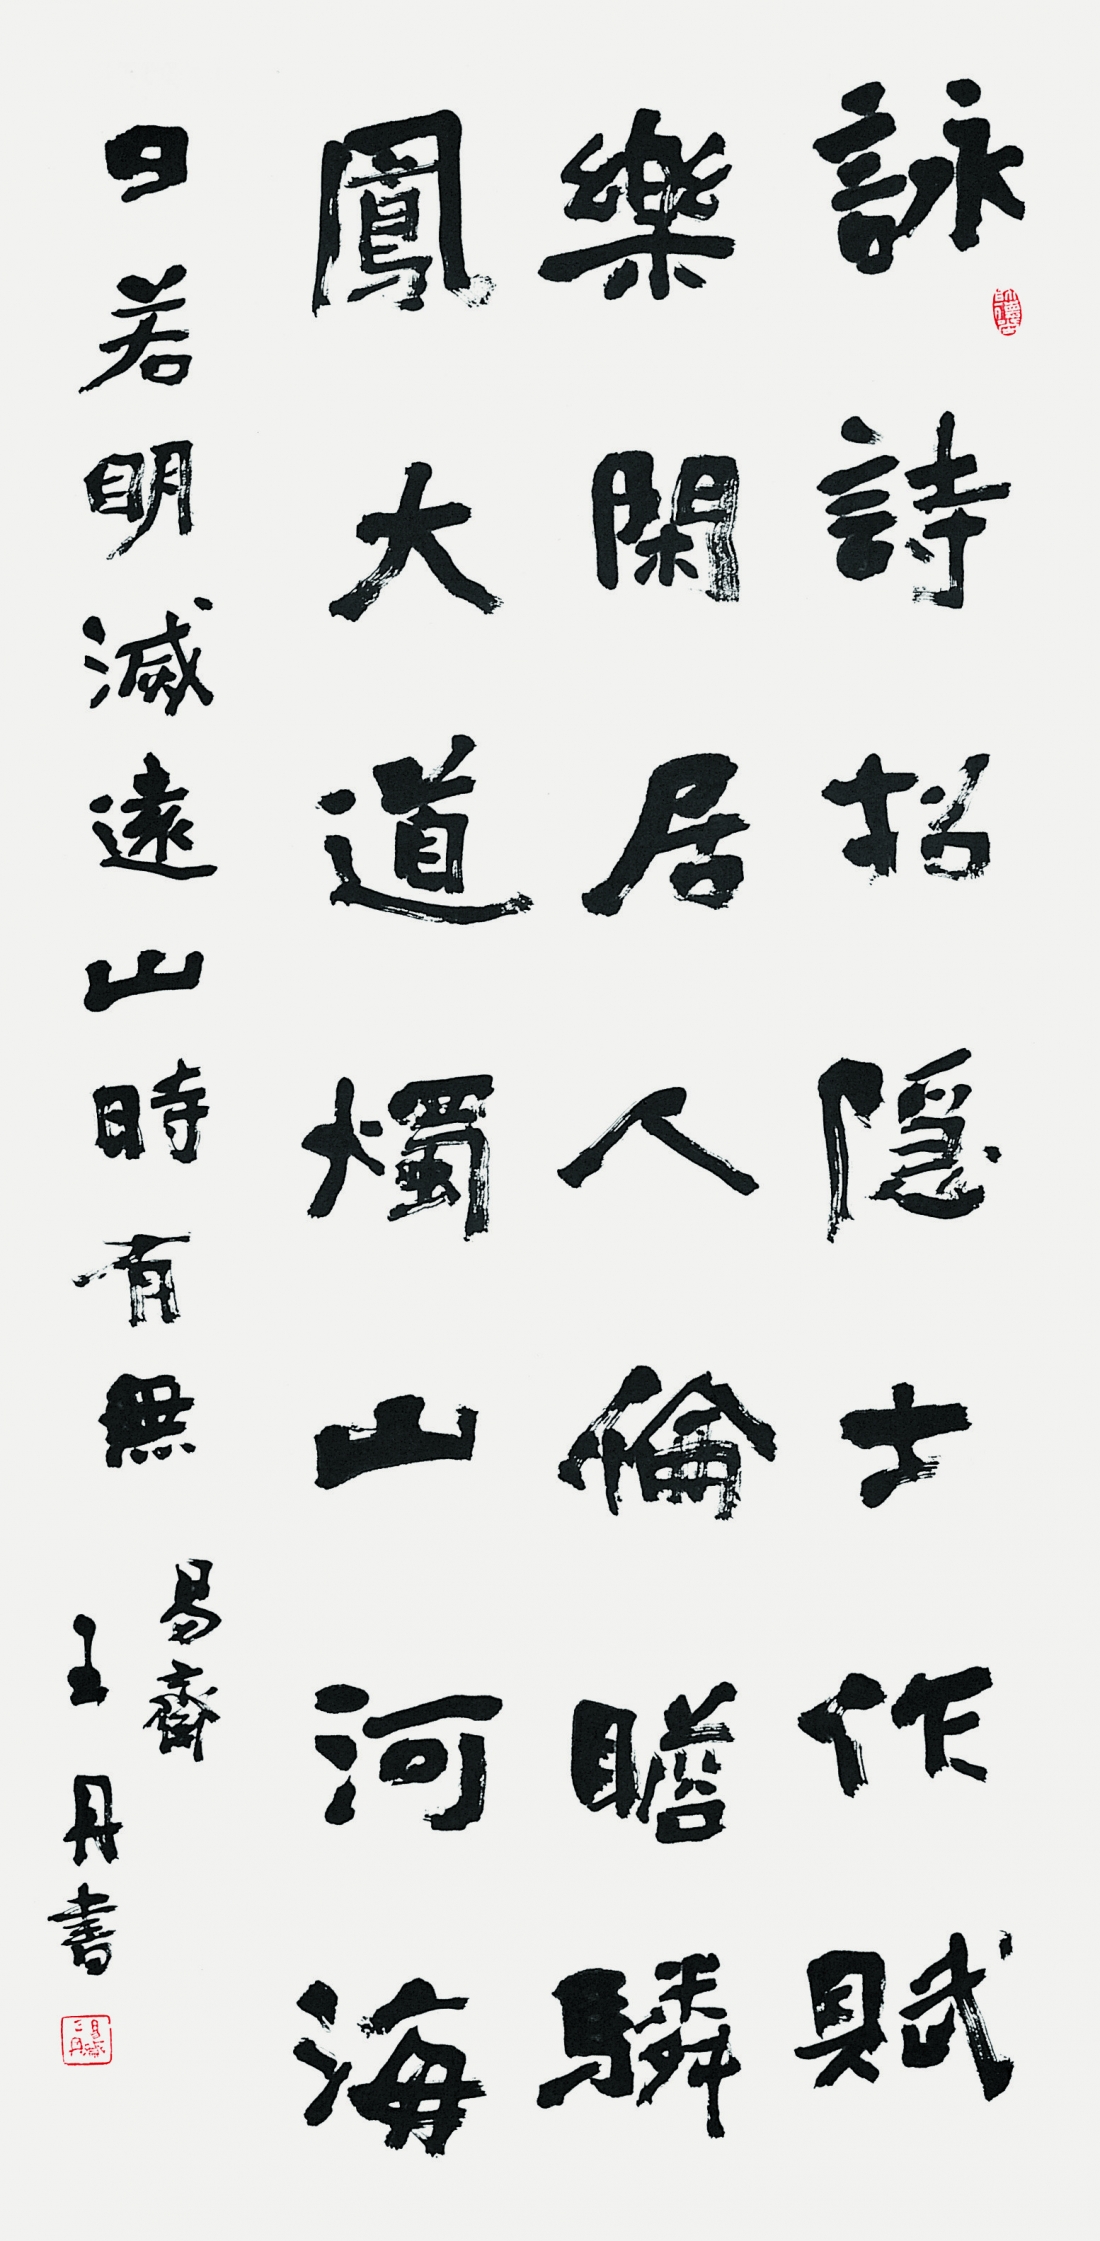 詠詩招隱士作賦
樂閑居人倫瞻驎
鳳大道燭山河海
日若明滅遠山時有無
易齋
王丹書